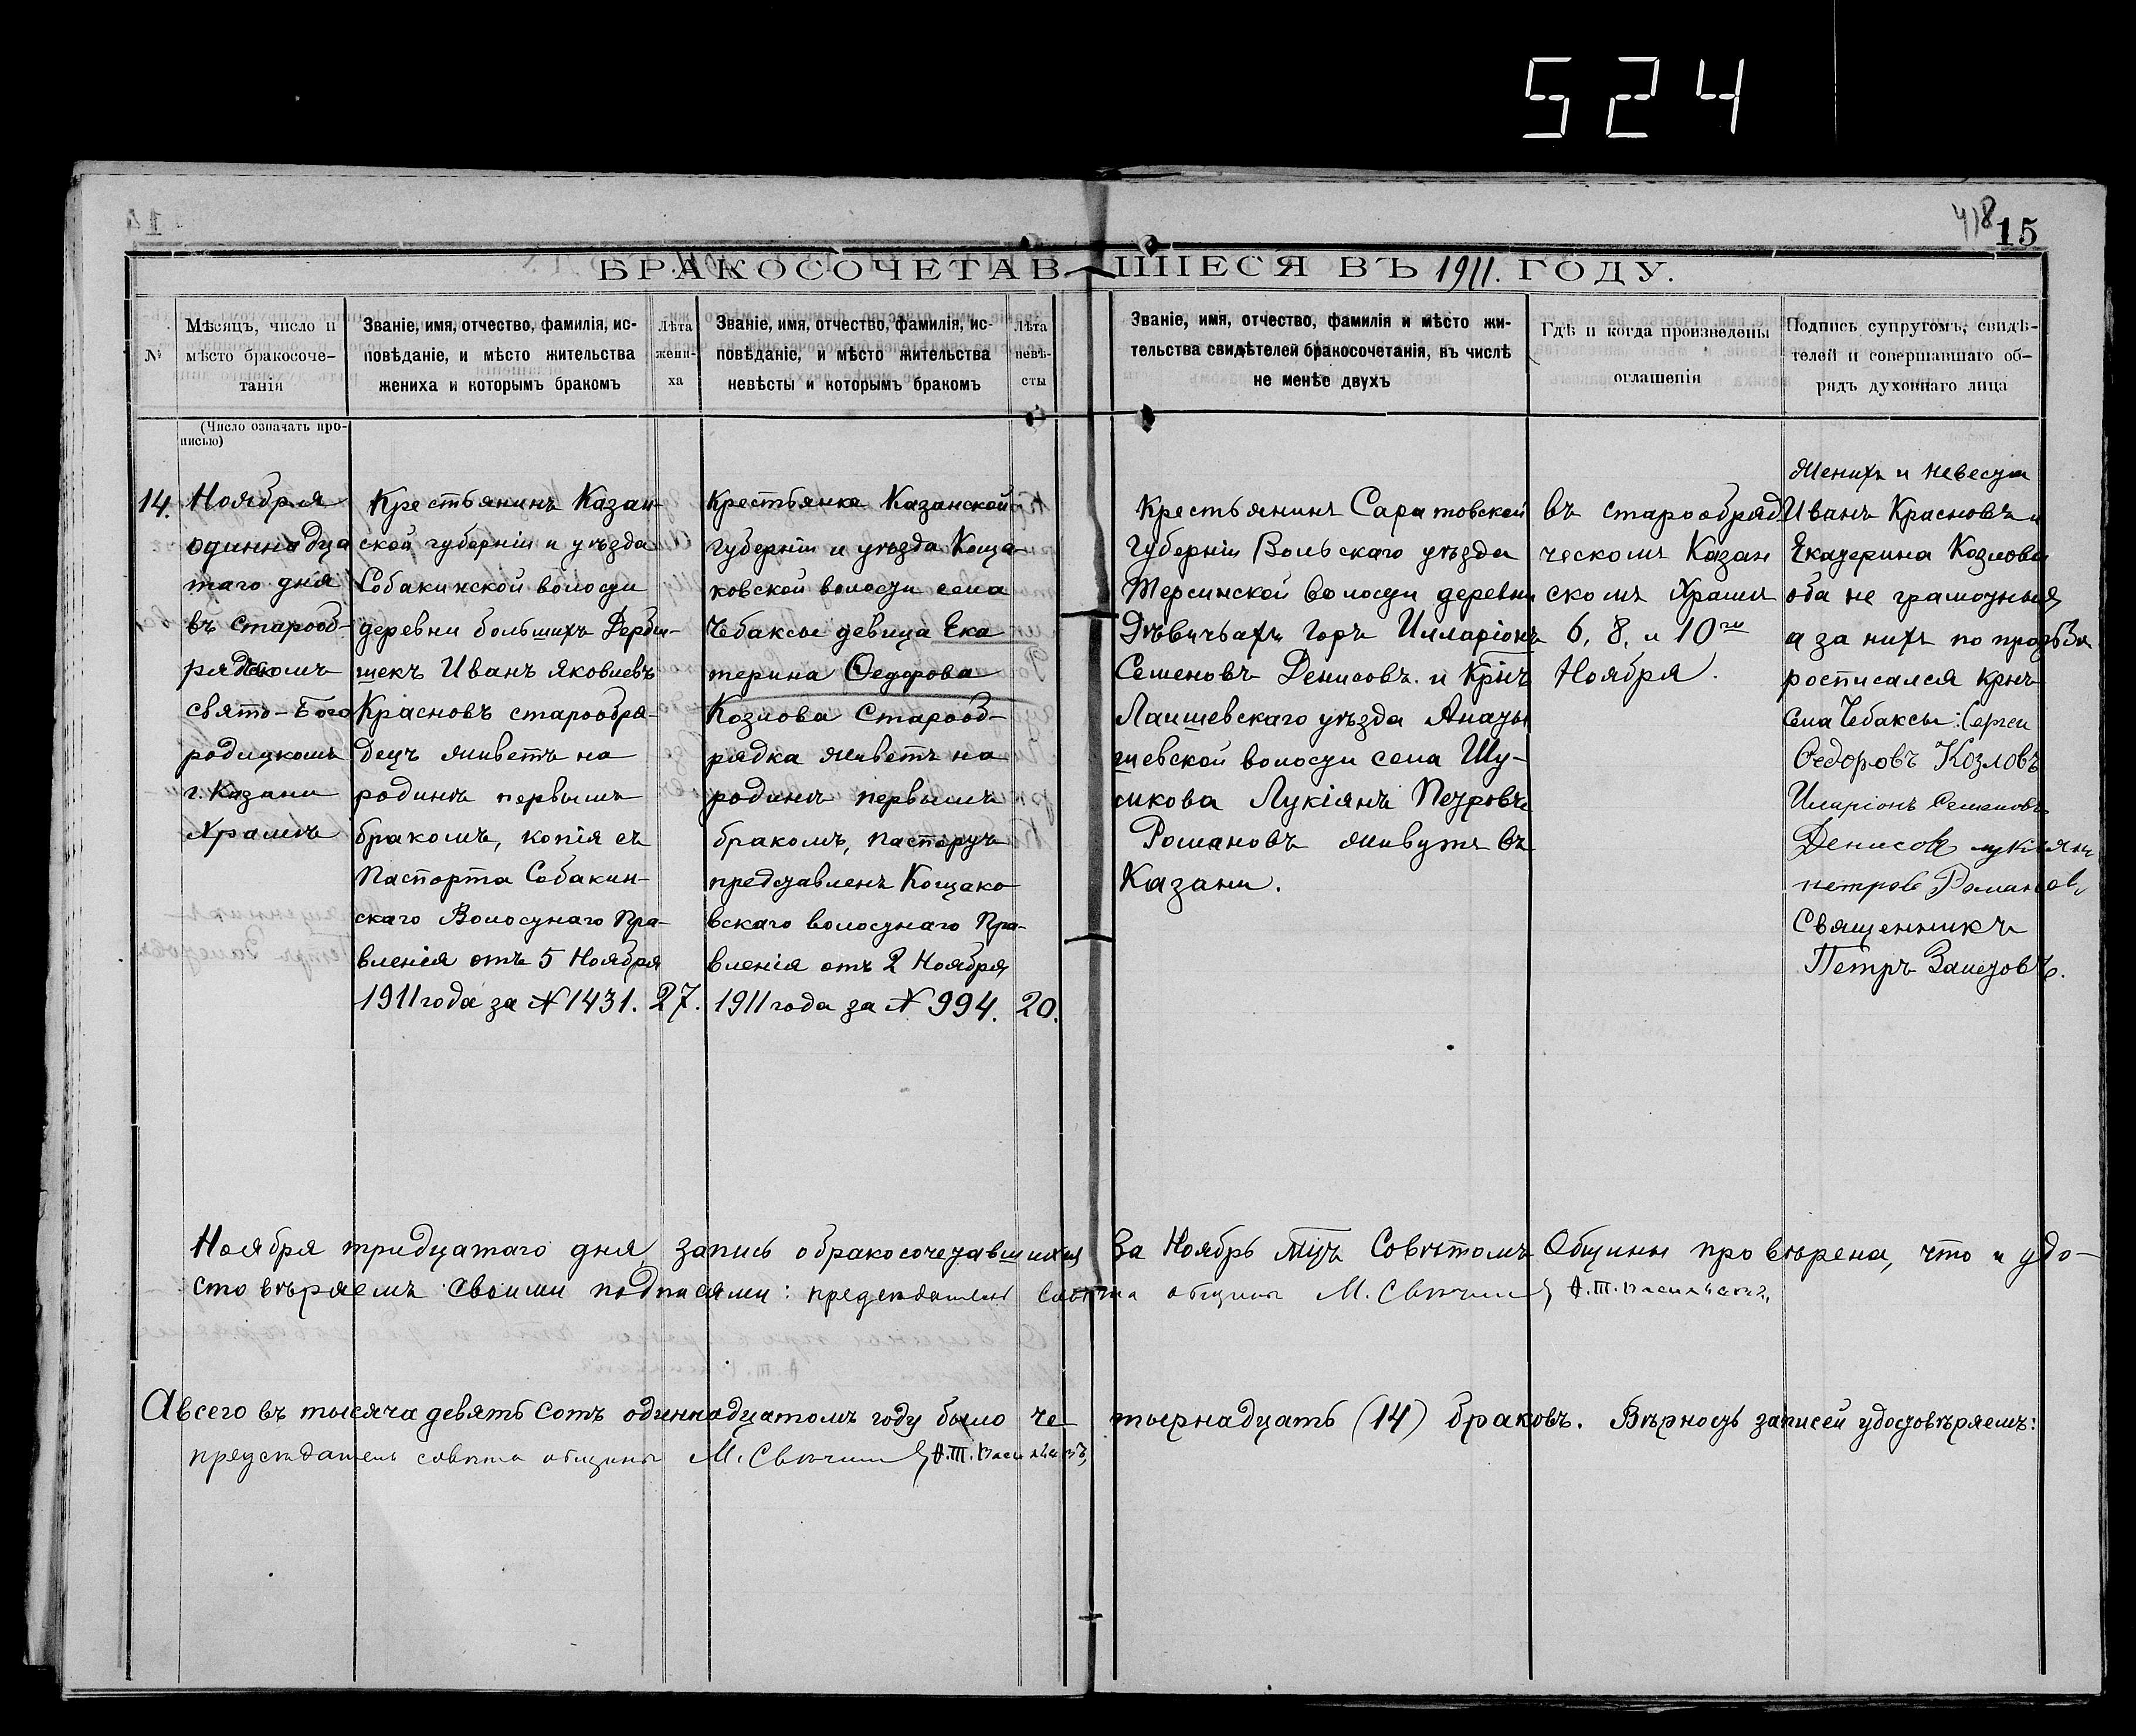 524
418
15
БРАКОСОЧЕТАВШІЕСЯ ВЪ 1911. ГОДУ.
№
Мѣсяцъ, число и
мѣсто бракосоче-
танія
Званіе, имя, отчество, фамилія, ис-
повѣданіе, и мѣсто жительства
жениха и которымъ бракомъ
Лѣта
жени-
ха
Званіе, имя, отчество, фамилія, ис-
повѣданіе, и мѣсто жительства
невѣсты и которымъ бракомъ
Лѣта
невѣ-
сты
Званіе, имя, отчество, фамилія и мѣсто жи-
тельства свидѣтелей бракосочетанія, въ числѣ
не менѣе двухъ
Гдѣ и когда произведены
оглашенія
Подпись супругомъ, свидѣ-
телей и совершавшаго об-
рядъ духовнаго лица
(Число означать про-
писью)
14.
Ноября
одиннадца
таго дня
въ старооб-
рядском
свято-Бого
родицкомъ
г. Казани
Храмѣ
Крестьянинъ Казан-
ской губерніи и уѣзда
Собакинской волости
деревни большихъ Дерби-
шекъ Иванъ Яковлевъ
Красновъ старообря-
децъ живетъ на
родинѣ первымъ
бракомъ, копія съ
Паспорта Собакин-
скаго Волостнаго Пра-
вленія отъ 5 Ноября
1911 года за № 1431.
27.
Крестьянка Казанской
губерніи и уѣзда Коща-
ковской волости села
Чебаксы девица Ека
терина Ѳедорова
Козлова Старооб-
рядка живетъ на
родинѣ первымъ
бракомъ, паспортъ
представленъ Кощако
вскаго волостнаго Пра-
вленія отъ 2 Ноября
1911 года за № 994.
20.
Крестьянинъ Саратовской
Губерніи Вольскаго уѣзда
Терсинской волости деревни
Дѣвичьахъ Горъ Илларіонъ
Семеновъ Денисовъ. и Крнъ
Лаишевскаго уѣзда Анаты
шевской волости села Шу-
мкова Лукіянъ Петровъ
Романовъ живутъ въ
Казани.
въ старообряд
ческомъ Казан
скомъ Храмѣ
6, 8, и 10го
Ноября.
Женихъ и невеста
Иванъ Красновъ и
Екатерина Козлова
оба не грамотныя
а за нихъ по прозьби
росписался крнъ
села Чебаксы: Сергеи
Ѳедоровъ Козловъ
Иларіонъ Семеновъ
Денисовъ лукіянъ
петровъ Романовъ
Священникъ
Петръ Залетовъ.
Ноября тридцатаго дня, запись о бракосочетавшихся за Ноябрь мцъ Совѣтомъ Общины провѣрена, что и удо-
стовѣряемъ своими подписями: председатель совѣта общины М. Свѣчин А.Т. Васильевъ
А всего въ тысяча девятьсотъ одиннадцатомъ году было четырнадцать (14) браковъ. Вѣрность записей удостовѣряемъ:
председатель совѣта общины М. Свѣчин А.Т. Васильевъ,